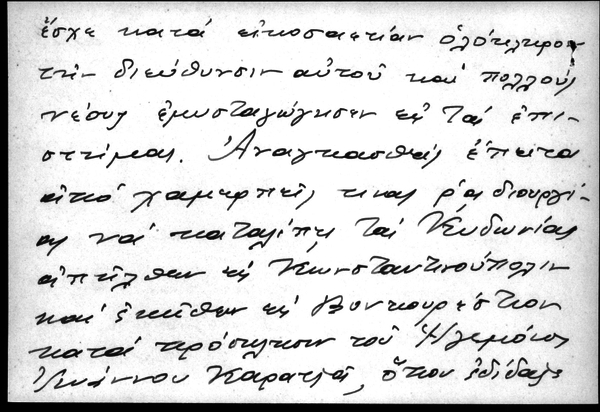 ἔσχε κατά εἰκοσαετίαν ὁλόκληρον
τὴν διεύθυνσιν αὐτοῦ καί πολλούς
νέους ἐμυσταγώγησεν εἰς τάς ἐπι-
στήμας. Ἀναγκασθείς ἔπειτα
ἀπό χαμερπεῖς τινας ῥαδιουργί-
ας νά καταλίπῃ τάς Κυδωνίας
ἀπῆλθεν εἰς Κωνσταντινούπολιν
καί ἐκεῖθεν εἰς Βουκουρέστιον
κατά πρόσκλησιν τοῦ Ἡγεμόνος
Ἰωάννου Καρατζᾶ, ὅπου ἐδίδαξε